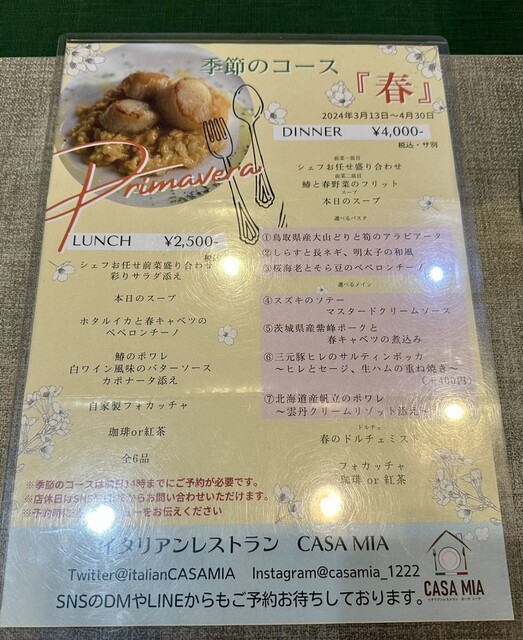 季節のコース
『春』
2024年3月13日〜4月30日
Primavera
DINNER ¥4,000-
税込・サ別
前菜一皿目
シェフお任せ盛り合わせ
前菜二皿目
鰆と春野菜のフリット
スープ
本日のスープ
選べるパスタ
①鳥取県産大山どりと筍のアラビアータ
②しらすと長ネギ、明太子の和風
③桜海老とそら豆のペペロンチーノ
選べるメイン
④スズキのソテー
マスタードクリームソース
⑤茨城県産紫峰ポークと
春キャベツの煮込み
⑥三元豚ヒレのサルティンボッカ
〜ヒレとセージ、生ハムの重ね焼き〜
(+400円)
⑦北海道産帆立のポワレ
〜雲丹クリームリゾット添え〜
ドルチェ
春のドルチェミスト
フォカッチャ
珈琲 or 紅茶
LUNCH ¥2,500-
税込
シェフお任せ前菜盛り合わせ
彩りサラダ添え
本日のスープ
ホタルイカと春キャベツの
ペペロンチーノ
鰆のポワレ
白ワイン風味のバターソース
カポナータ添え
自家製フォカッチャ
珈琲or紅茶
全6品
※季節のコースは前日14時までにご予約が必要です。
※店休日はSNS からお問い合わせいただけます。
※予約時に ューをお伝えください
イタリアンレストラン CASA MIA
Twitter@italianCASAMIA Instagram@casamia_1222
SNSのDMやLINEからもご予約お待ちしております。
CASA MIA
イタリアンレストラン カーサ ミーア